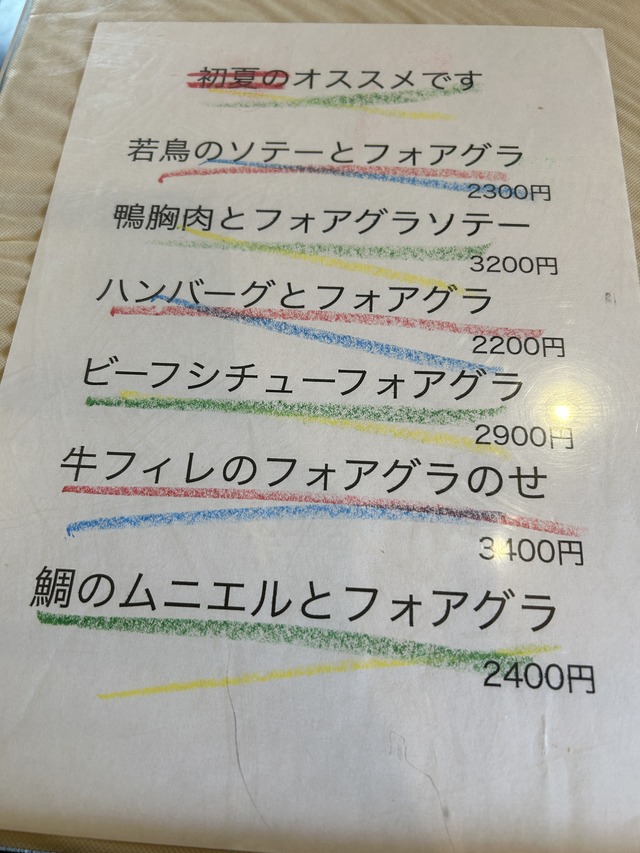 初夏のオススメです
若鳥のソテーとフォアグラ
2300円
鴨胸肉とフォアグラソテー
3200円
ハンバーグとフォアグラ
2200円
ビーフシチューフォアグラ
2900円
牛フィレのフォアグラのせ
3400円
鯛のムニエルとフォアグラ
2400円